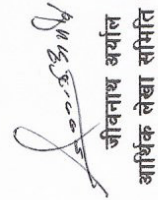 जीवनाथ अर्याल
आर्थिक लेखा समिति